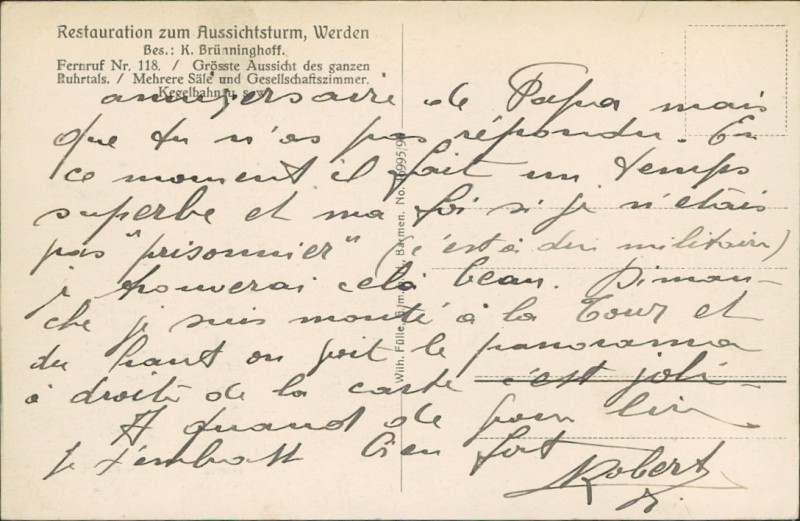 Restauration zum Aussichtsturm, Werden
Bes.: K. Brünninghoff.
Fernruf Nr. 118. / Grösste Aussicht des ganzen
Ruhrtals. / Mehrere Säle und Gesellschaftszimmer.
Kegelbahnen usw.
anniversaire de Papa mais
que tu n'as pas répondu. En
ce moment il fait un temps
superbe et ma foi si je n'étais
pas "prisonnier" (c'est à dire militaire)
je trouverai celà beau. Diman-
che je suis monté à la Tour et
du haut on voit le panorama
à droite de la carte c'est joli-
A quand de
je t'embrasse bien fort
Robert
Wilh. Fülle, Barmen. No. 995/9